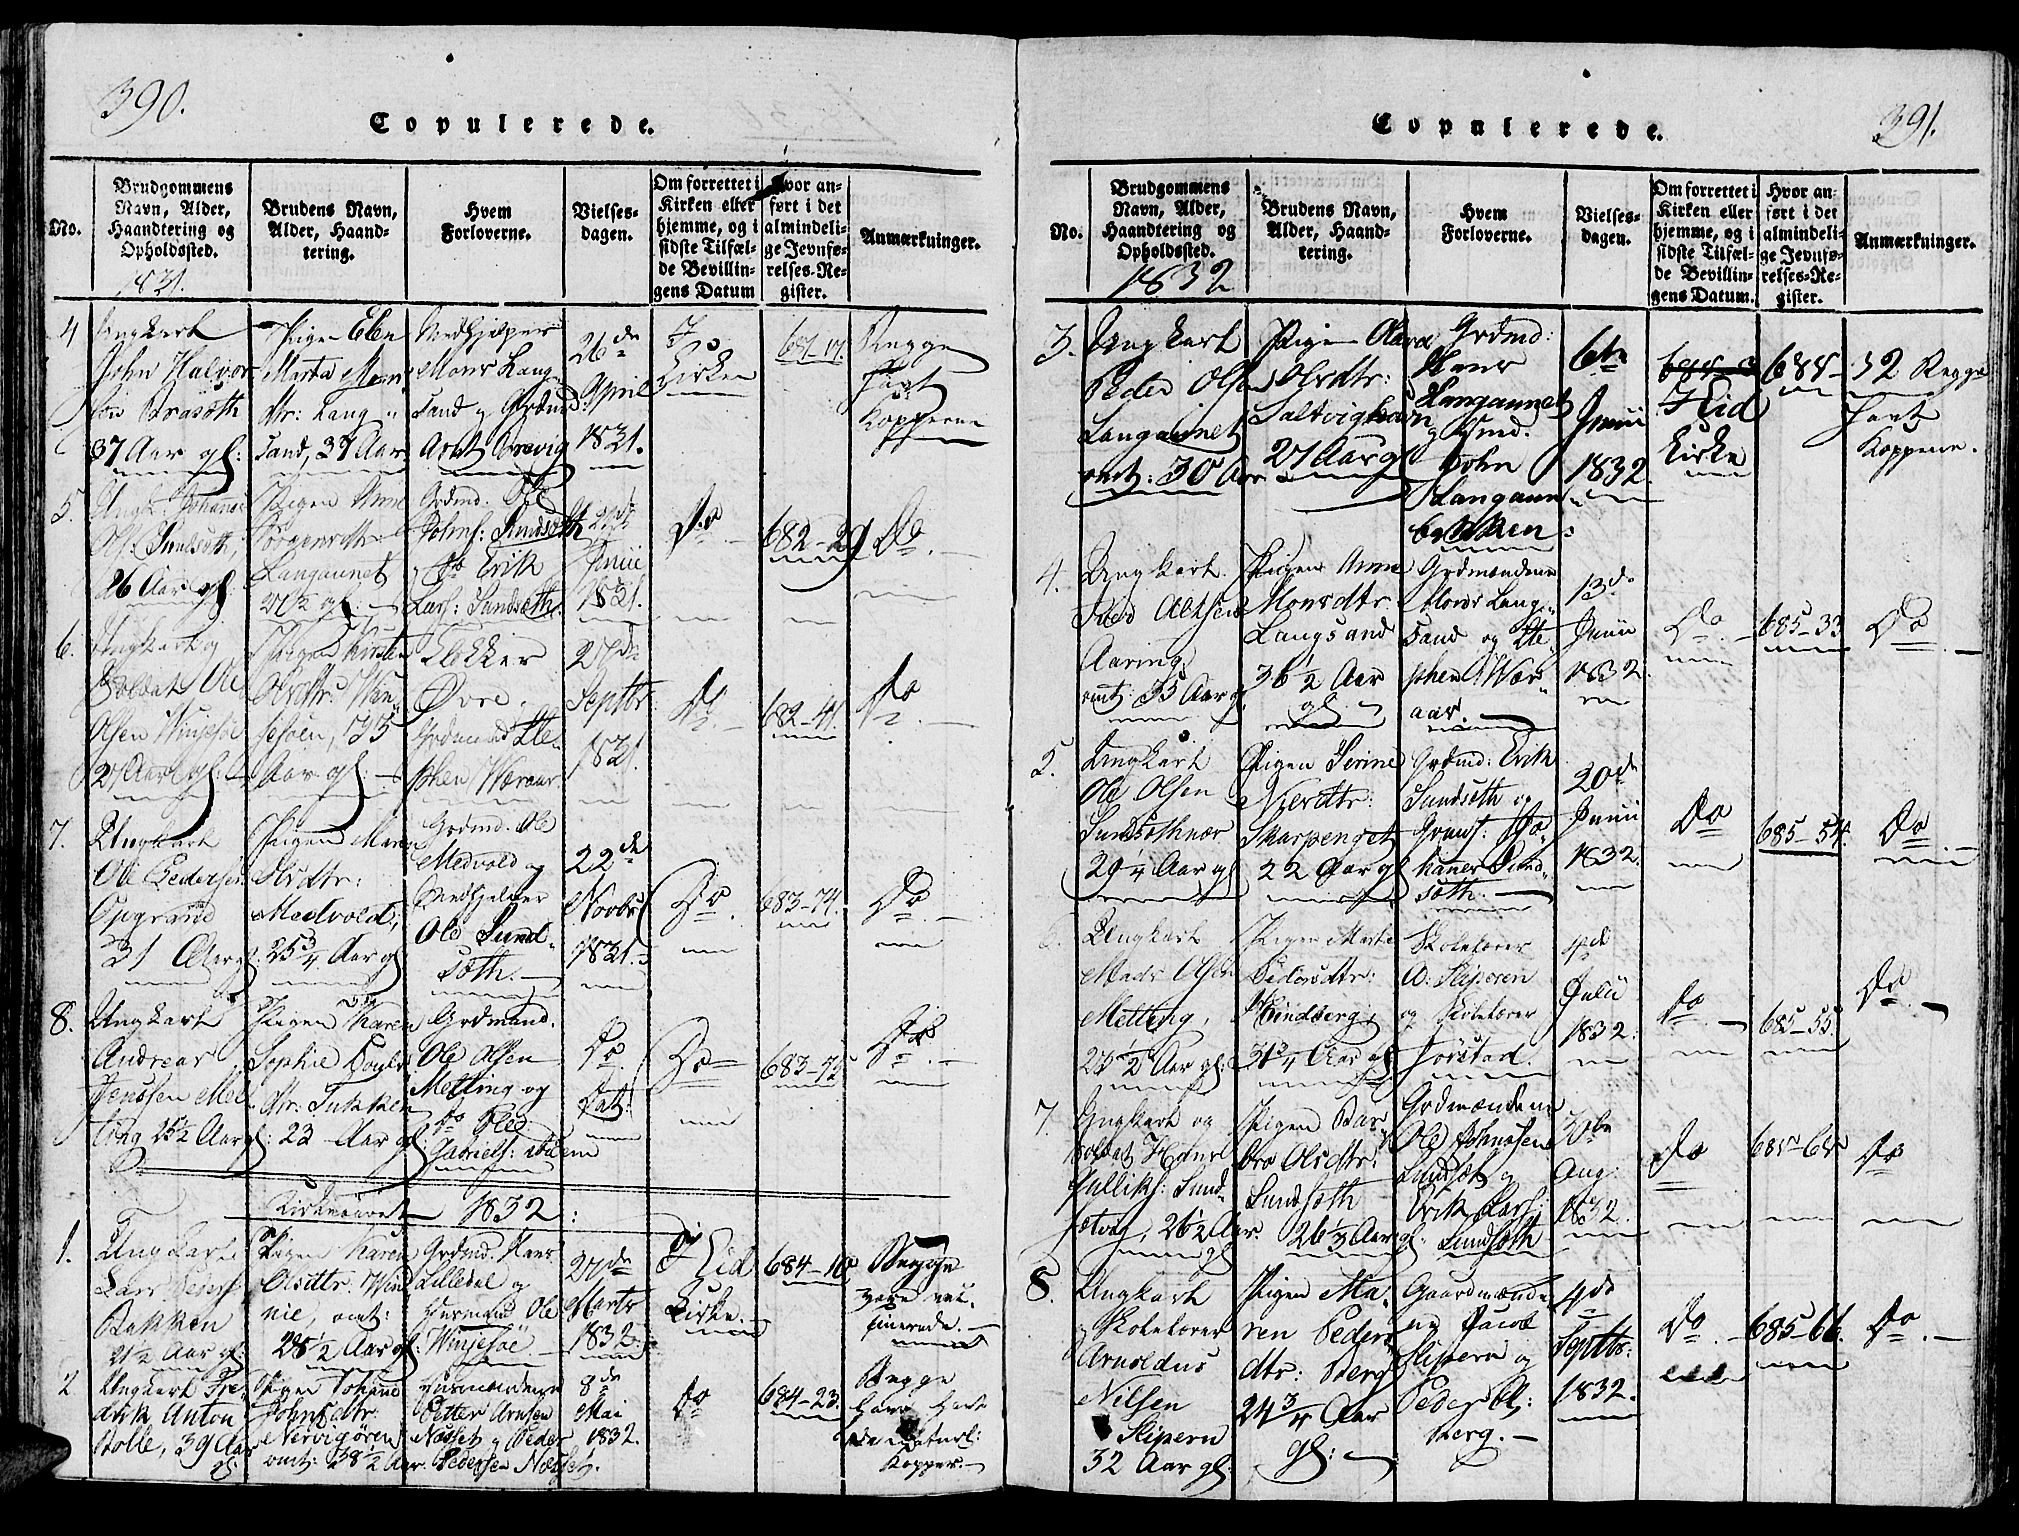 390.
Copulerede.
No.
Brudgommens
Navn, Alder,
Haandtering og
Opholdssted.
1831.
Brudens Navn,
Alder, Haand-
tering.
Hvem
Forloverne.
Vielses-
dagen.
Om forrettet i
Kirken eller
hjemme, og i
sidste Tilfæl-
de Bevillin-
gens Datum
Hvor an-
ført i det
almindeli-
ge Jevnfø-
relses-Re-
gister.
Anmærkninger.
4
Ungkarl
John Halvor
37 Aar gl:
Pigen Elen
Marta Mons
dtr: Lang
sand, 39 Aar
Medhjelper
Mons Lang
sand og Grdmd:
Arnt Brevig
26de
April
1831.
I
Kirken
Begge
havt
Kopperne
5.
Ungk: Johannes
Ols: Sundsøth,
26 Aar gl:
Pigen Anne
Jørgensdtr
Langaunet
27½ gl:
Grdmd. Ole
Johns: Sundsøth
Do Erik
Lars: Sundsøth.
Junii
1831.
Do
682-29
Do
6.
Ungkarl og
Soldat Ole
Olsen Winjesøe
27 Aar gl:
Pigen Kirsten
Olsdtr: Win-
jesøen, 35
Aar gl:
Klokker
Øvre.
Grdmand Ste-
phen Wæraar
27de
Septbr
1831.
Do
682-41.
Do
7.
Ungkarl
Ole Peders:
Opgrand
31 Aar gl:
Pigen Maren
Olsdtr:
Medvold,
25¾ Aar gl
Grdmd. Ole
Medvold og
Medhjelper
Ole Sund-
søth.
22de
Novbr
1831.
Do
683-74.
Do
8.
Ungkarl
Andreas
Jenssen Mel-
ting 25½ Aar gl:
Pigen Karen
Sophie
dtr: Bukken
23 Aar gl:
Grdmand.
Ole Olsen
Melting og
Do Ole
Gabriels:
Do
Dat:
Do
683-75
Do
Kirkeaaret 1832:
1.
Ungkarl
Lars Peders:
Bakken
21½ Aar gl:
Pigen Karen
Olsdtr. Win
nie, omt:
28½ Aar gl:
Grdmd. Hans
Lilledal og
Husmand Ole
Winjesøe
27de
Marts
1832.
I Eid
Kirke.
684-10
Begge
vare vac-
cinerede.
2
Ungkarl Fre-
drik Anton
Holle, 39 Aar
gl:
Pigen Johanne
Johnsdtr
Nervigøren
omt: 38½ Aar.
Husmændene
Petter Arnsen
Næsset og Peder
Pedersen Næsset.
8de
Mai
1832.
Do
684-23.
Begge
have havt
de naturl:
Kopper.
391.
Copulerede.
No.
Brudgommens
Navn, Alder,
Haandtering og
Opholdssted.
1832
Brudens Navn,
Alder, Haand-
tering.
Hvem
Forloverne.
Vielses-
dagen.
Om forrettet i
Kirken eller
hjemme, og i
sidste Tilfæl-
de Bevillin-
gens Datum.
Hvor an-
ført i det
almindeli-
ge Jevnfø-
relses-Re-
gister.
Anmærkninger.
3.
Ungkarl
Peder Olsen
Langaunet
omt: 30 Aar
Pigen
Olsdtr:
Saltvighavn
27 Aar gl
Grdmd:
Hans
Langaunet
og Husmd.
John
Langaun-
bakken
6te
Junii
1832.
Eid
Kirke
685-32
Begge
havt
Koppene.
4.
Ungkarl.
Aaring
omt: 35 Aar gl.
Pigen Anne
Monsdtr
Langsand
36½ Aar
gl.
Grdmændene
Mons Lang-
sand og Ste-
phen Wær-
aar.
13de
Junii
1832.
Do
685-33
Do
5.
Ungkarl
Ole Olsen
Sundsøthnær
29¼ Aar gl
Pigen Serine
Nilsdtr:
Skarpenget
22 Aar gl
Grdmd: Erik
Sundsøth og
Grmd: Jo-
hannes Sund-
søth.
20de
Junii
1832.
Do
685-54.
Do
6.
Ungkarl
Mads Olsen
Metting,
25½ Aar gl:
Pigen Marte
Pedersdtr:
Windberg,
31¾ Aar gl
Skolelærer
A: Slipern
og Skolelærer
Jørstad.
4de
Julii
1832.
Do
685-55.
Do
7.
Ungkarl og
Soldat
Gulliks: Sund-
søtvag, 26½ Aar
gl
Pigen Bar-
bra Olsdtr:
Sundsøth
26⅓ Aar gl:
Grdmændene
Ole Johnsen
Sundsøt og
Erik Lars:
Sundsøth
30te
Aug:
1832.
Do
685-65
Do
8.
Ungkarl
og Skolelærer
Arnoldus
Nilsen
Slipern
32 Aar gl:
Pigen Ma-
ren Peders
dtr: Berg
24¾ Aar
gl:
Gaardmænde
ne Jacob
Slipern og
Peder Ol:
Berg.
4de
Septbr:
1832.
Do
685-66.
Do